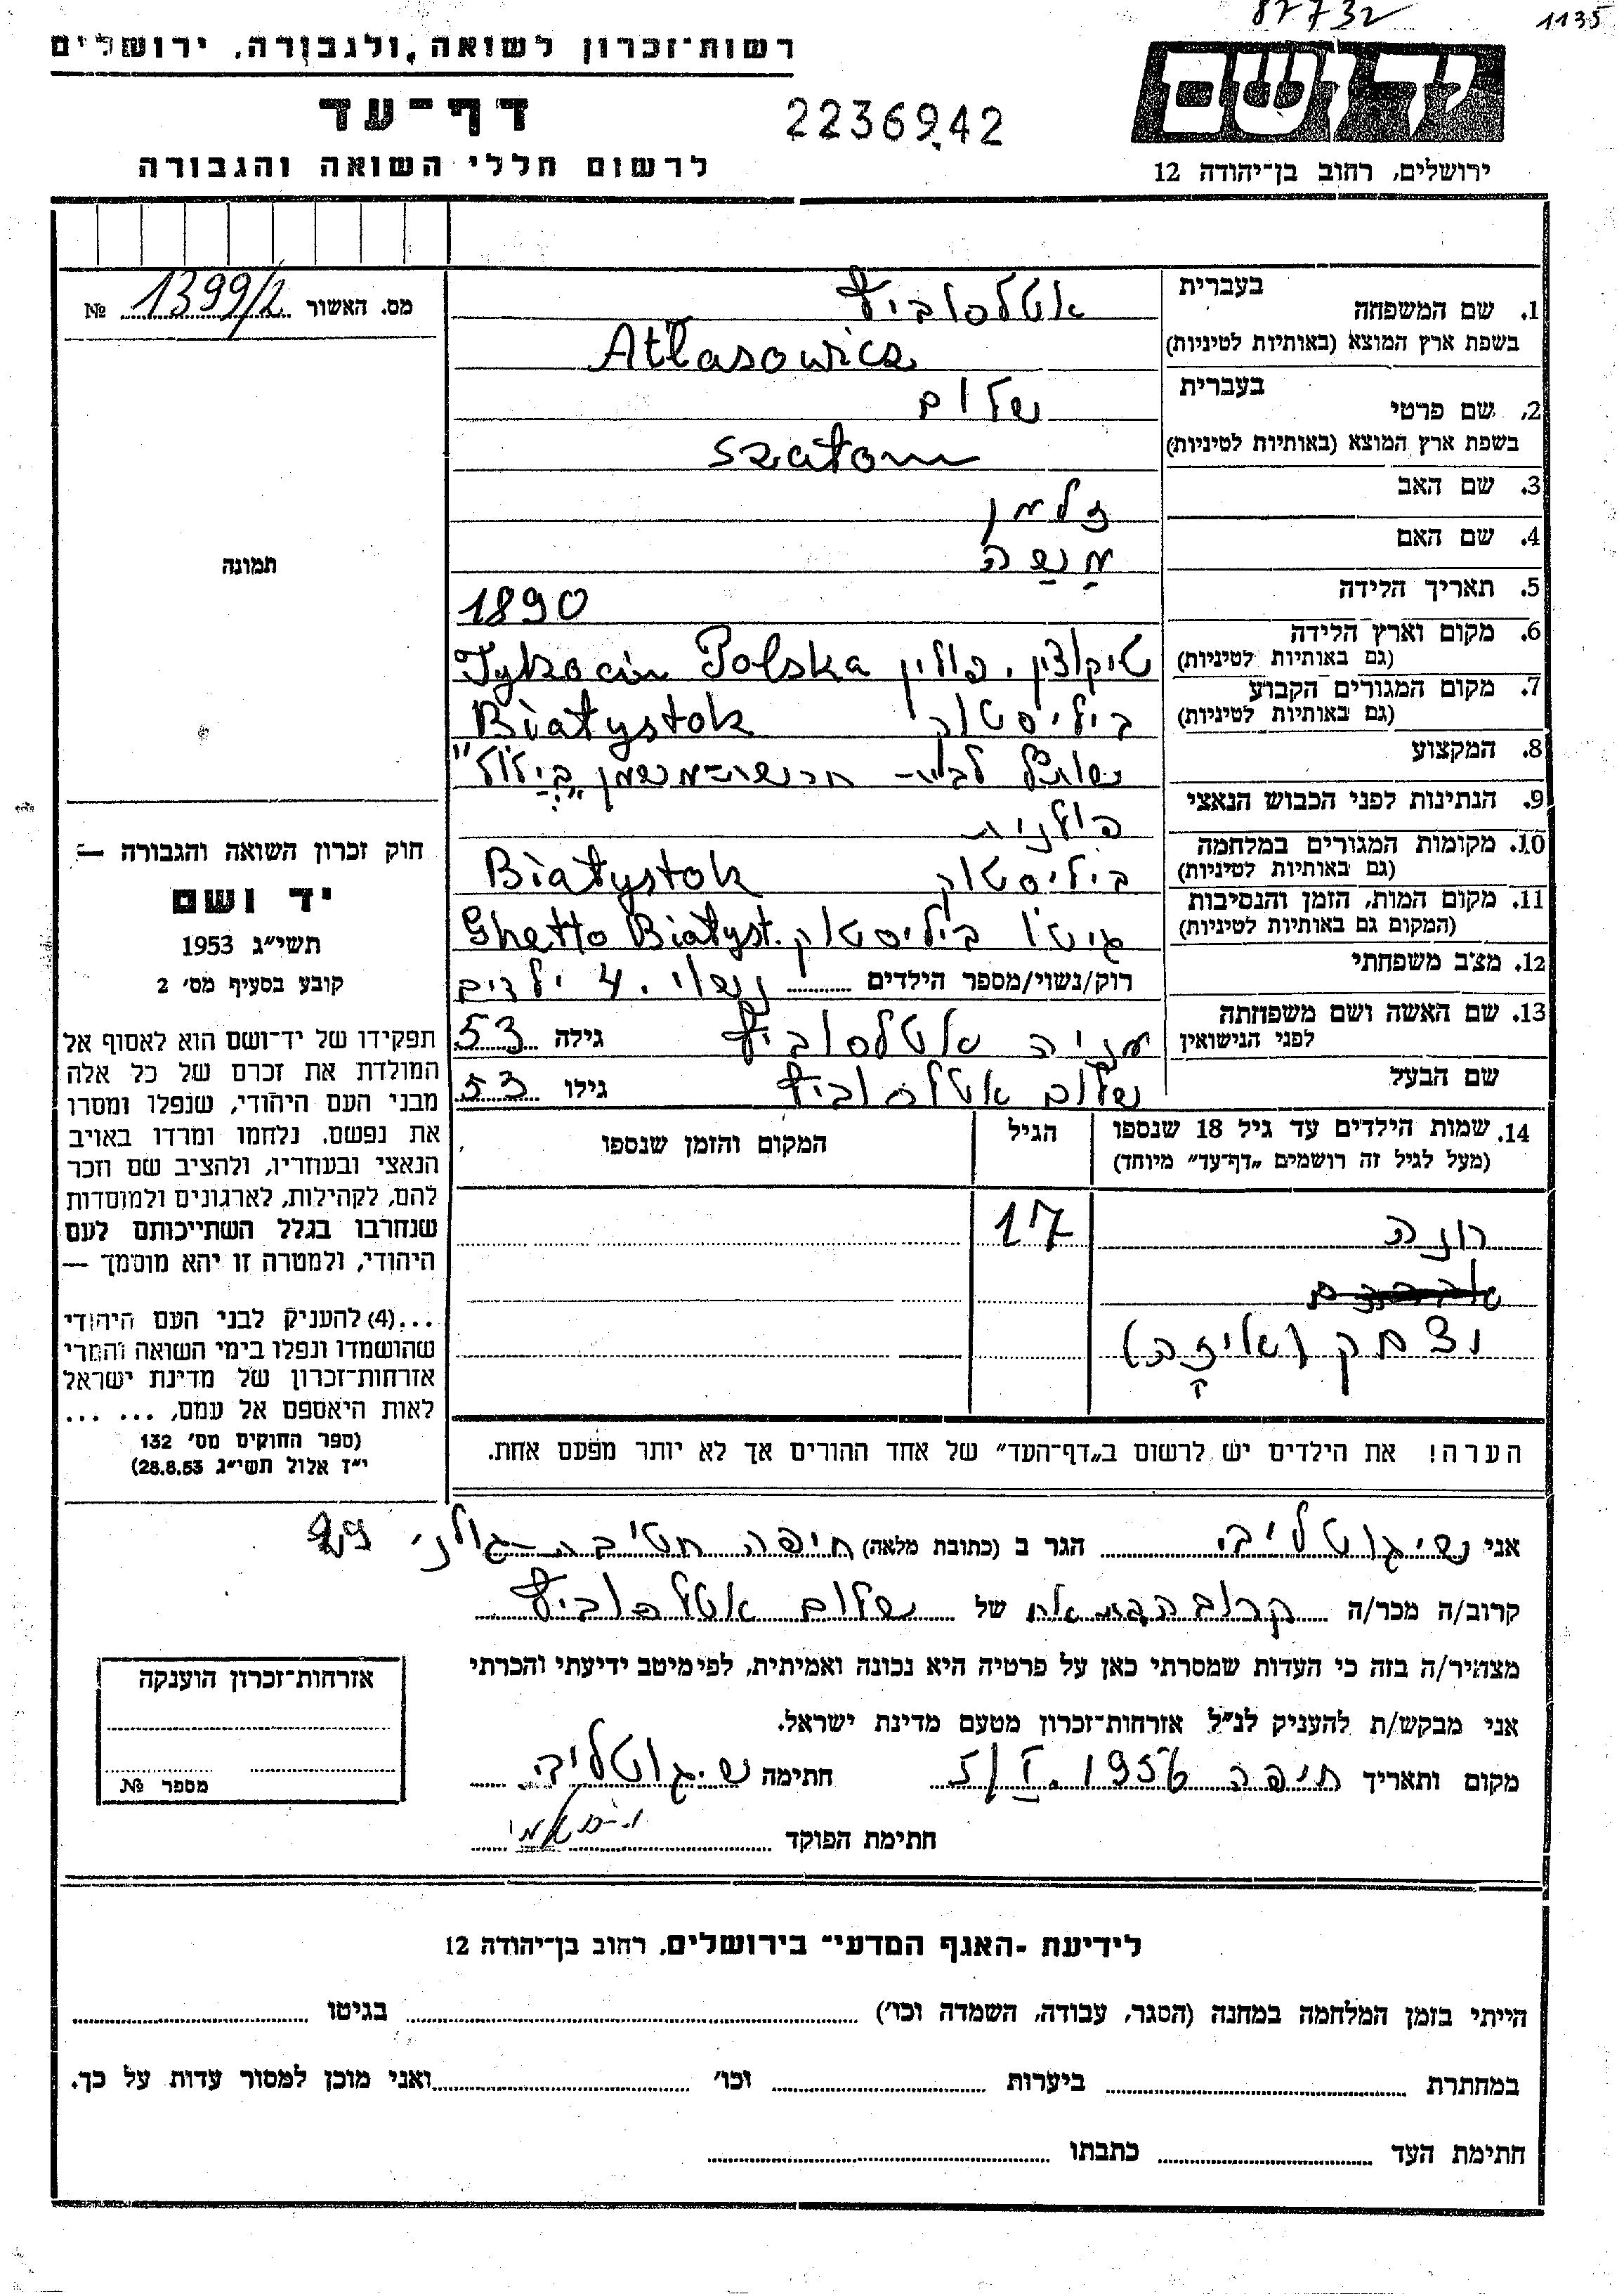 87732
1135
רשות־זכרון לשואה ולגבורה, ירושלים
יד ושם
דף־עד
2236942
לרשום חללי השואה והגבורה
ירושלים, רחוב בן־יהודה 12
מס. האשור 1399/2 №
1. שם המשפחה בעברית אטלסוביץ
בשפת ארץ המוצא (באותיות לטיניות) Atlasowicz
2. שם פרטי בעברית שלום
בשפת ארץ המוצא (באותיות לטיניות) Szałom
3. שם האב זלמן
4. שם האם מַשַה
5. תאריך הלידה 1890
6. מקום וארץ הלידה טיקוצין, פולין Tykocin Polska
(גם באותיות לטיניות)
7. מקום המגורים הקבוע ביליסטוק Białystok
(גם באותיות לטיניות)
8. המקצוע
9. הנתינות לפני הכבוש הנאצי פולנית
10. מקומות המגורים במלחמה ביליסטוק Białystok
(גם באותיות לטיניות)
11. מקום המות, הזמן והנסיבות גיטו ביליסטוק Ghetto Białyst.
(המקום גם באותיות לטיניות)
12. מצב משפחתי רוק/נשוי/מספר הילדים נשוי. 4 ילדים
13. שם האשה ושם משפחתה מניה אטלסוביץ גילה 53
לפני הנישואין
שם הבעל שלום אטלסוביץ גילו 53
14. שמות הילדים עד גיל 18 שנספו הגיל המקום והזמן שנספו
(מעל לגיל זה רושמים „דף־עד" מיוחד)
17
יצחק (איזק)
הערה! את הילדים יש לרשום ב„דף־העד" של אחד ההורים אך לא יותר מפעם אחת.
תמונה
חוק זכרון השואה והגבורה —
יד ושם
תשי"ג 1953
קובע בסעיף מס' 2
תפקידו של יד־ושם הוא לאסוף אל
המולדת את זכרם של כל אלה
מבני העם היהודי, שנפלו ומסרו
את נפשם, נלחמו ומרדו באויב
הנאצי ובעוזריו, ולהציב שם וזכר
להם, לקהילות, לארגונים ולמוסדות
שנחרבו בגלל השתייכותם לעם
היהודי, ולמטרה זו יהא מוסמך —
...(4) להעניק לבני העם היהודי
שהושמדו ונפלו בימי השואה והמרי
אזרחות־זכרון של מדינת ישראל
לאות היאספם אל עמם, ... ...
(ספר החוקים מס' 132
י"ז אלול תשי"ג 28.8.53)
אני הגר ב (כתובת מלאה) חיפה חטיבה־גולני
קרוב/ה מכר/ה של שלום אטלסוביץ
מצהיר/ה בזה כי העדות שמסרתי כאן על פרטיה היא נכונה ואמיתית, לפי מיטב ידיעתי והכרתי
אני מבקש/ת להעניק לנ"ל אזרחות־זכרון מטעם מדינת ישראל.
מקום ותאריך חיפה 5/I. 1956 חתימה
חתימת הפוקד
אזרחות־זכרון הוענקה
מספר №
לידיעת „האגף המדעי" בירושלים, רחוב בן־יהודה 12
הייתי בזמן המלחמה במחנה (הסגר, עבודה, השמדה וכו') בגיטו
במחתרת ביערות וכו' ואני מוכן למסור עדות על כך.
חתימת העד כתבתו